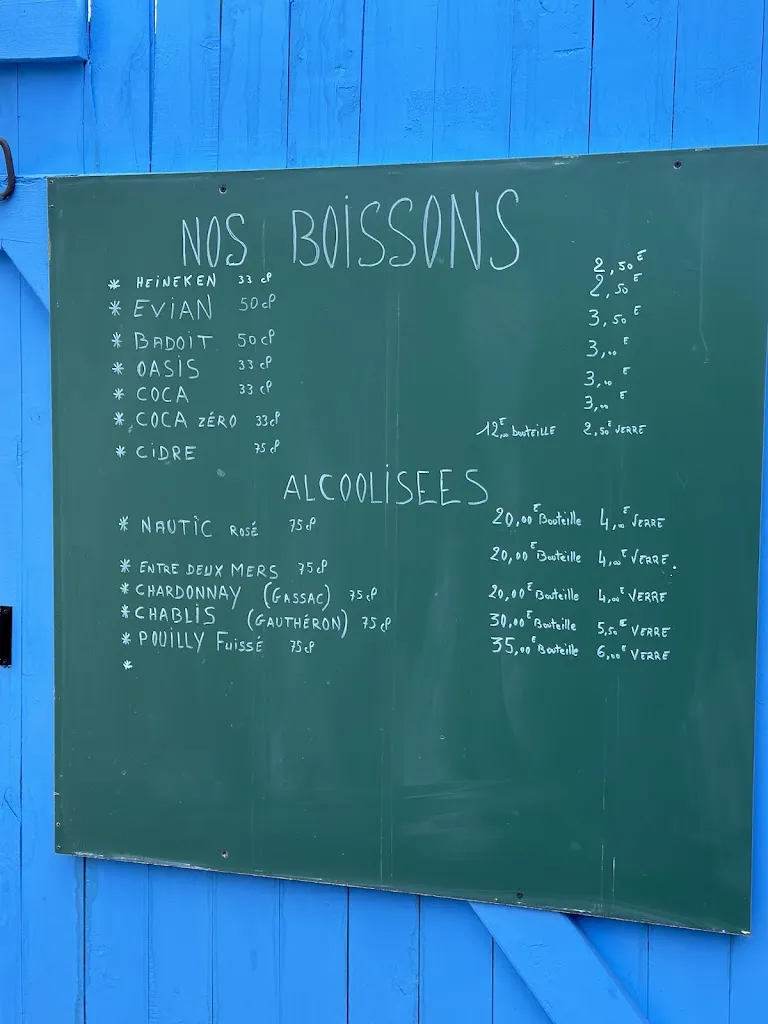 NOS BOISSONS
* HEINEKEN 33 cl 2,50€
* EVIAN 50 cl 2,50€
* BADOIT 50 cl 3,50€
* OASIS 33 cl 3,00€
* COCA 33 cl 3,00€
* COCA ZÉRO 33 cl 3,00€
* CIDRE 75 cl 12,00€ bouteille 2,50€ VERRE
ALCOOLISEES
* NAUTIC ROSÉ 75 cl 20,00€ Bouteille 4,00€ VERRE
* ENTRE DEUX MERS 75 cl 20,00€ Bouteille 4,00€ VERRE.
* CHARDONNAY (GASSAC) 75 cl 20,00€ Bouteille 4,00€ VERRE
* CHABLIS (GAUTHÉRON) 75 cl 30,00€ Bouteille 5,50€ VERRE
* POUILLY Fuissé 75 cl 35,00€ Bouteille 6,00€ VERRE
*